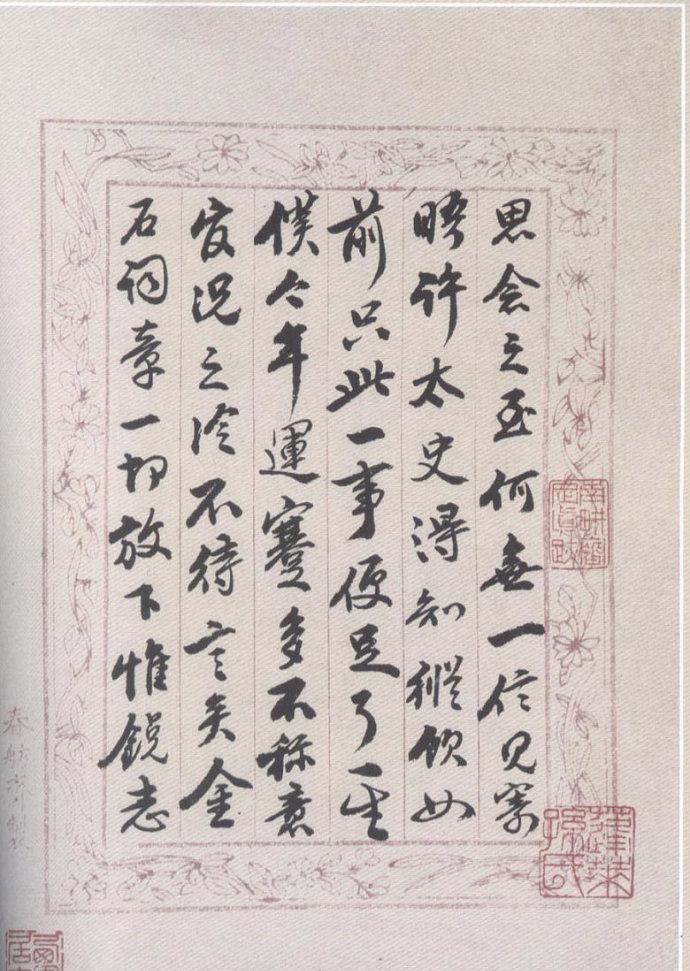 思念之至何無一信見寄
晤許太史得知縱飲如
前只此一事便足了一生
僕今年運蹇多不称意
官況之冷不待言矣金
石詞章一切放下惟銳志